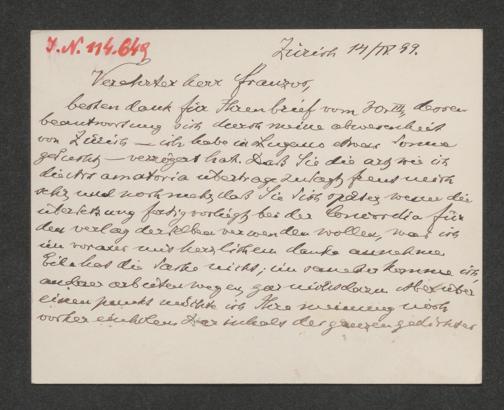 J.N. 114.649
Zürich 14/IV. 99.
Verehrter herr Franzos,
besten dank für Ihren brief vom 30. III, dessen
beantwortung sich durch meine abwesenheit
von Zürich – ich habe in Lugano etwas sonne
gesucht – verzögert hat. Daß Sie die art, wie ich
die ars amatoria übertrage zusagt, freut mich
sehr und noch mehr, daß Sie sich später, wenn die
übersetzung fertig vorliegt, bei der Concordia für
den verlag derselben verwenden wollen, was ich
im voraus mit herzlichem danke annehme.
Eile hat die sache nicht; im sommer komme ich,
anderer arbeiten wegen, gar nicht dazu. Aber über
einen punkt möchte ich Ihre meinung noch
vorher einholen. Der inhalt des ganzen gedichtes